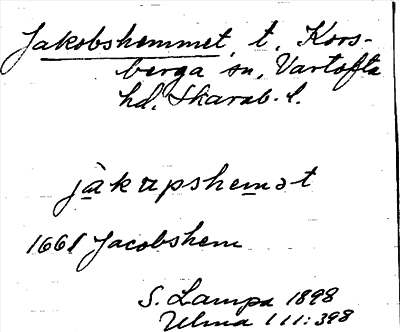 Jakobshemmet, t. Kors-
berga sn, Vartofta
hd, Skarab. l.
jàkupshemət
1661 Jacobshem
S. Lampa 1898
Ulma 111:398